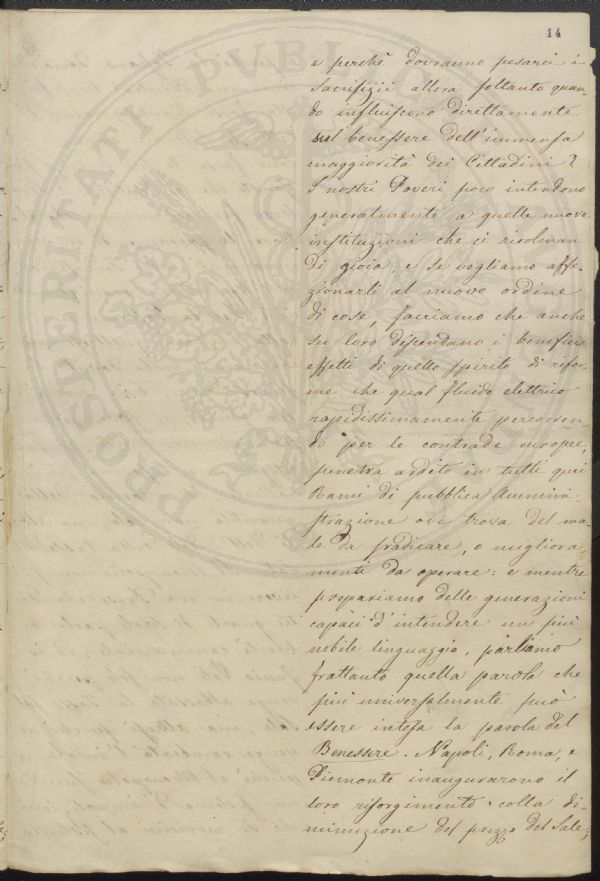 14
e perchè dovranno pesarci i
Sacrifizii allora soltanto quan-
do influiscono direttamente
sul benessere dell'immensa
maggiorità dei Cittadini?
I nostri Poveri poco intendono
generalmente a quelle nuove
instituzioni che ci ricolman
di gioia, e se vogliamo affe-
zionarli al nuovo ordine
di cose, facciamo che anche
su loro discendano i benefici
effetti di quello spirito di rifor-
me che qual fluido elettrico
rapidissimamente percorren-
do per le contrade europee,
penetra ardito in tutti quei
Rami di pubblica Ammini-
strazione ove trova del ma-
le da sradicare, o migliora-
menti da operare: e mentre
prepariamo delle generazioni
capaci d'intendere un più
nobile linguaggio, parliamo
frattanto quella parola che
più universalmente può
essere intesa la parola del
Benessere. Napoli, Roma, e
Piemonte inaugurarono il
loro risorgimento colla di-
minuzione del prezzo del Sale;
PROSPERITATI PUBL